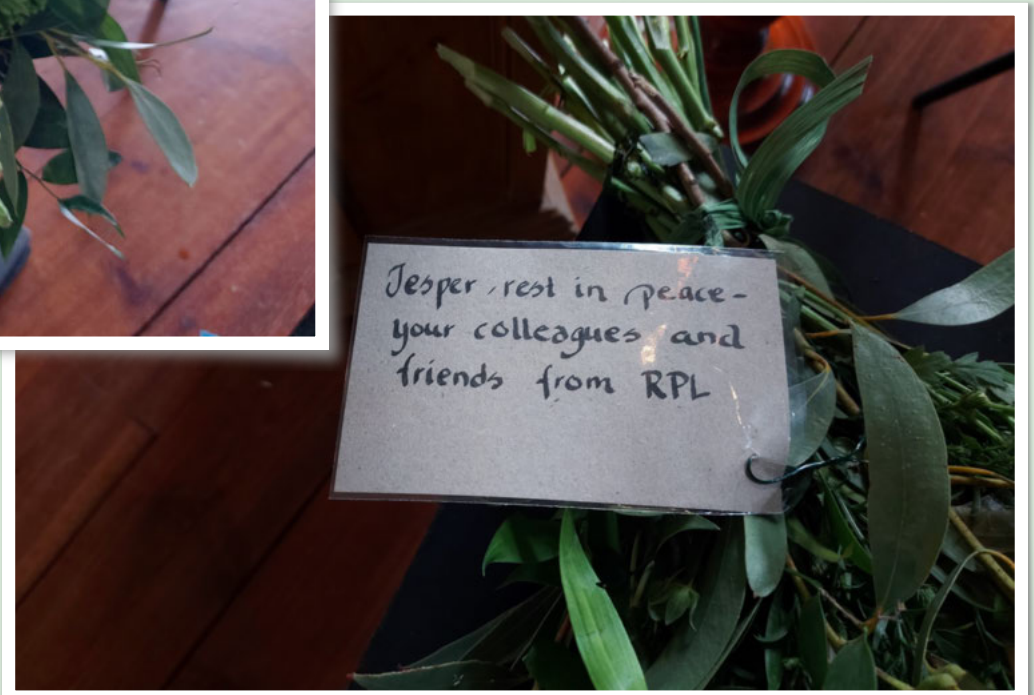 Jesper, rest in peace-
your colleagues and
friends from RPL